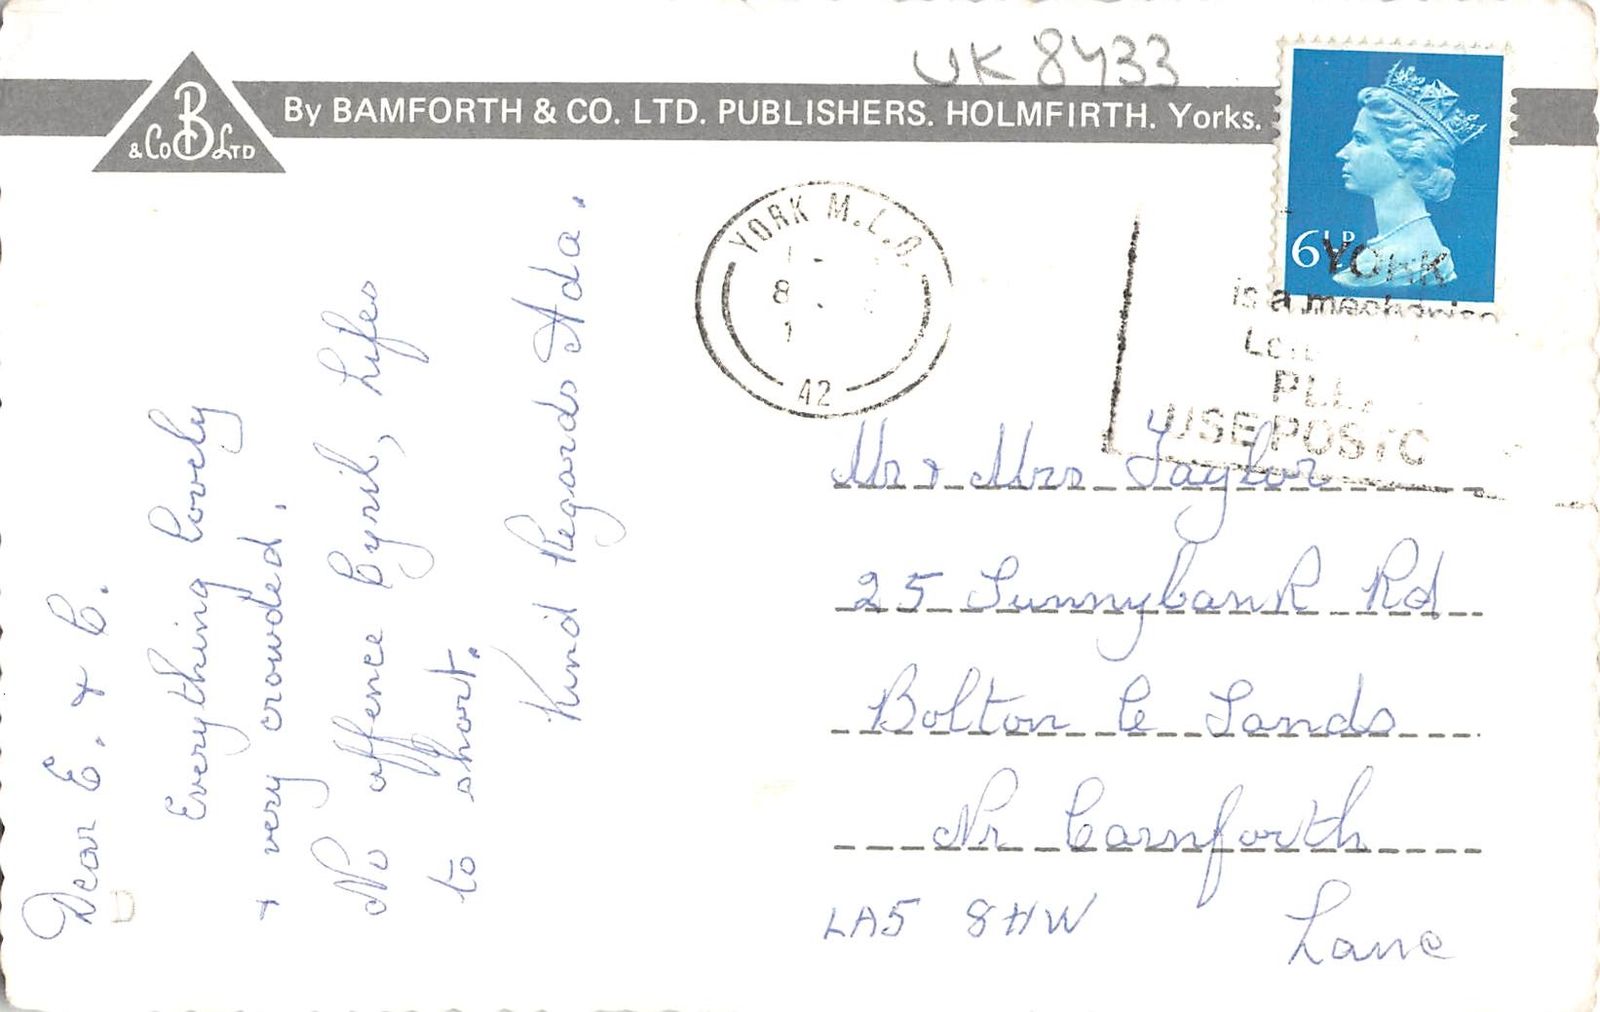 UK 8433
By BAMFORTH & CO. LTD. PUBLISHERS. HOLMFIRTH. Yorks.
B
& Co LTD
YORK M.L.O.
8
1
42
6½P
YORK
is a
USE POSTC
Dear E. & C.
Everything lovely
& very crowded.
No offence Cyril, Lifes
to short.
Kind Regards Ada.
Mr & Mrs Taylor
25 Sunnybank Rd
Bolton le Sands
Nr Carnforth
LA5 8HW Lanc